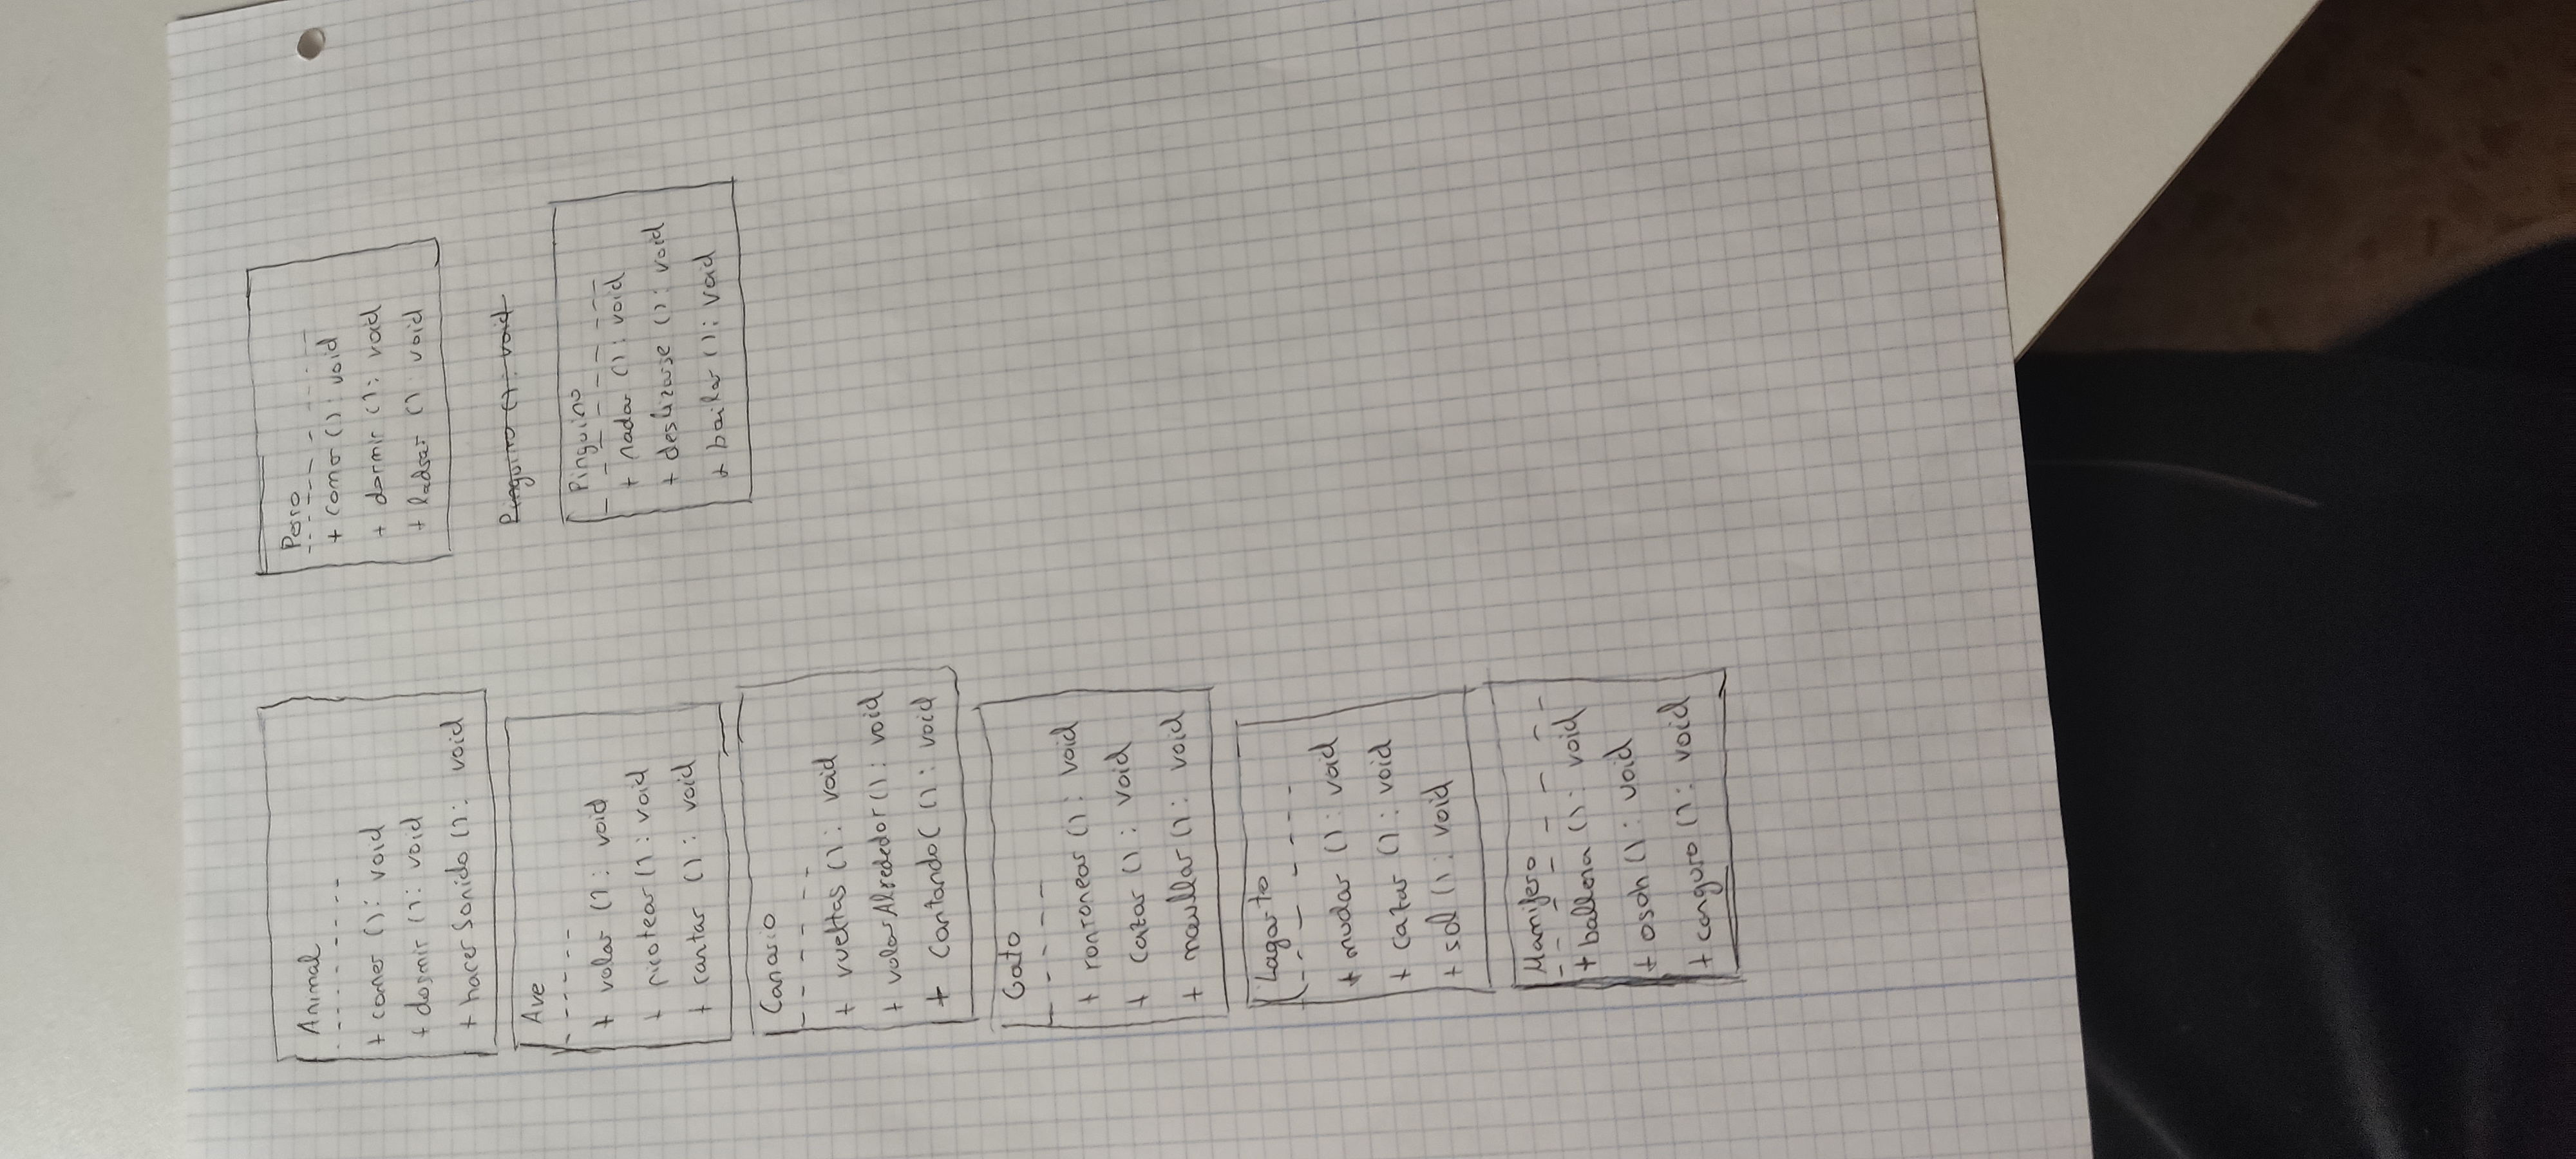 Animal
+ comer (): void
+ dormir (): void
+ hacerSonido (): void
Ave
+ volar (): void
+ picotear (): void
+ cantar (): void
Canario
+ vueltas (): void
+ volarAlrededor (): void
+ Cantando( (): void
Gato
+ ronronear (): void
+ cazar (): void
+ maullar (): void
Lagarto
+ mudar (): void
+ cazar (): void
+ sol (): void
Mamifero
+ ballena (): void
+ osoh (): void
+ canguro (): void
Perro
+ comer (): void
+ dormir (): void
+ ladrar () void
Pinguino (): void
Pinguino
+ nadar (): void
+ deslizarse (): void
+ bailar (): void